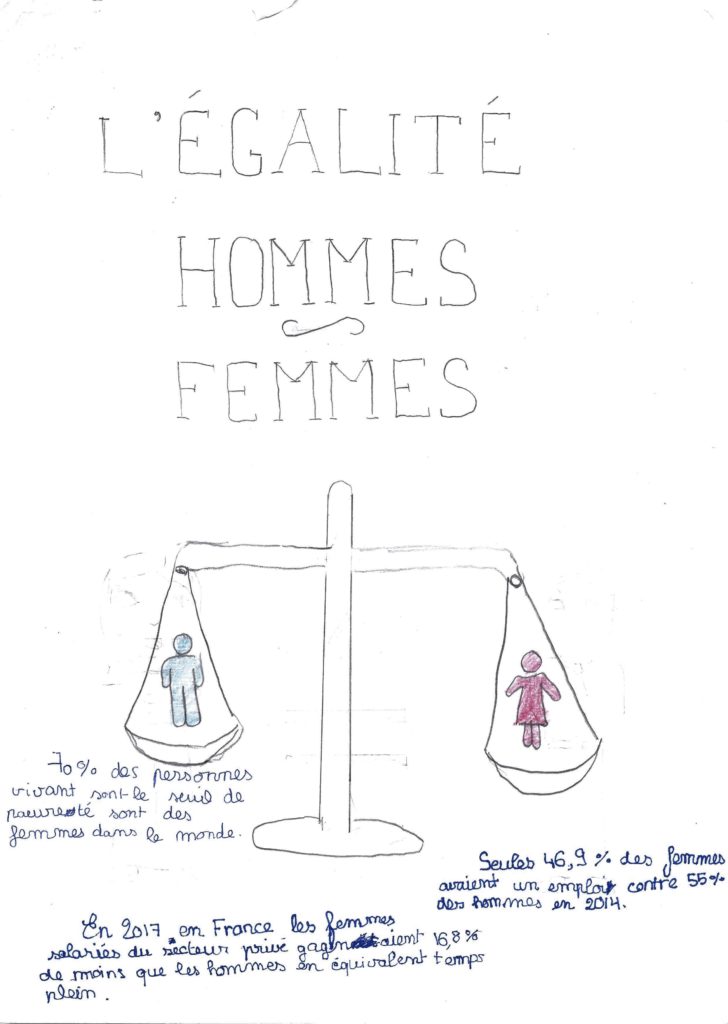 L'ÉGALITÉ
HOMMES
~
FEMMES
70% des personnes
vivant sont-le seuil de
pauvreté sont des
femmes dans le monde.
Seules 46,9 % des femmes
avaient un emploi contre 55%
des hommes en 2014.
En 2017 en France les femmes
salariés du secteur privé gagnaient 16,8%
de moins que les hommes en équivalent temps
plein.